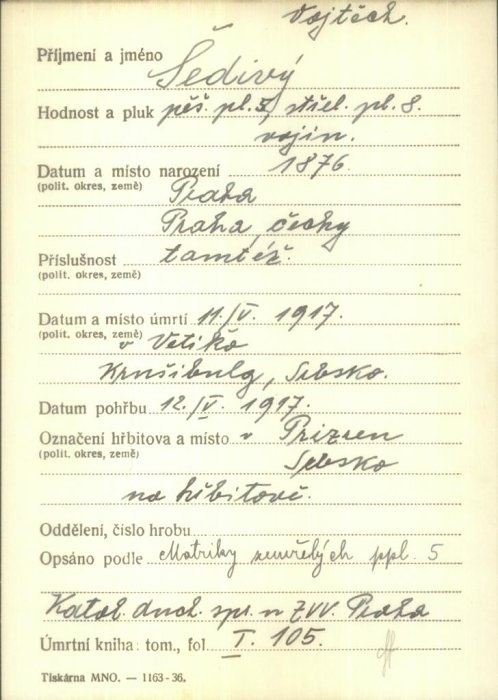 Vojtěch.
Příjmení a jméno Šedivý
Hodnost a pluk pěš. pl. 5, střel. pl. 8.
vojín.
Datum a místo narození 1876.
(polit. okres, země) Praha
Praha, Čechy
Příslušnost tamtéž.
(polit. okres, země)
Datum a místo úmrtí 11./V. 1917.
(polit. okres, země) v Veliko
Krušibulg, Srbsko.
Datum pohřbu 12./V. 1917.
Označení hřbitova a místo v Prizren
(polit. okres, země) Srbsko
na hřbitově.
Oddělení, číslo hrobu
Opsáno podle Matriky zemřelých ppl. 5
Katol. duch. spr. n ZVV. Praha
Úmrtní kniha: tom., fol. I. 105.
Tiskárna MNO. — 1163-36.